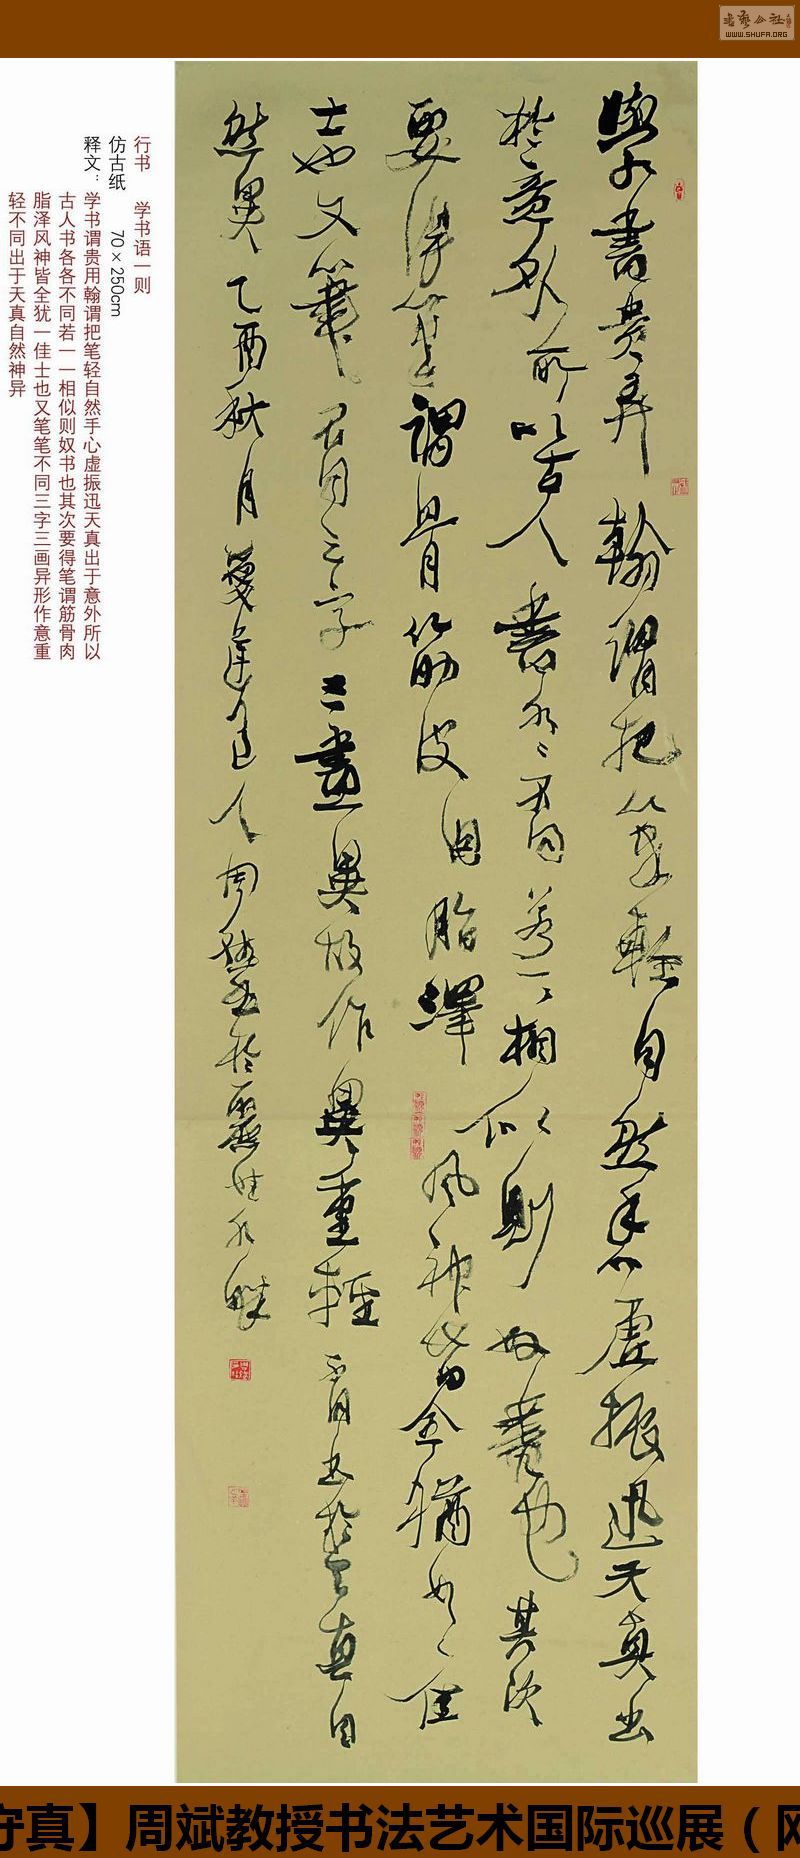 书艺公社
WWW.SHUFA.ORG
行书 学书语一则
仿古纸 70×250cm
释文：学书谓贵用翰谓把笔轻自然手心虚振迅天真出于意外所以
古人书各各不同若一一相似则奴书也其次要得笔谓筋骨肉
脂泽风神皆全犹一佳士也又笔笔不同三字三画异形作意重
轻不同出于天真自然神异
书贵弄翰谓把笔轻自然手心虚振迅天真出
于意外所以古人书各各不同若一一相似则奴书也其次
要得笔谓骨筋皮肉脂泽风神皆全犹如一佳
士也又笔笔不同三字三畫異故作異重輕不同出於天真自
然異乙酉秋月
守真】周斌教授书法艺术国际巡展（网